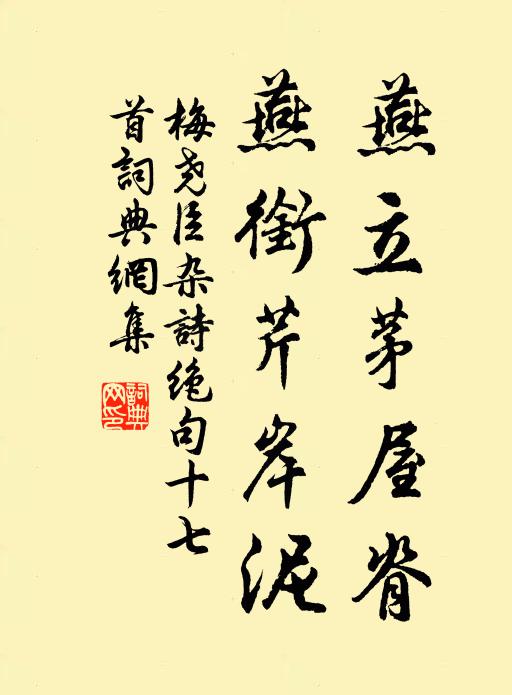 燕立茅屋脊
燕銜芹岸泥
梅尧臣杂詩绝句十七
首詞典網集
詞典
网印